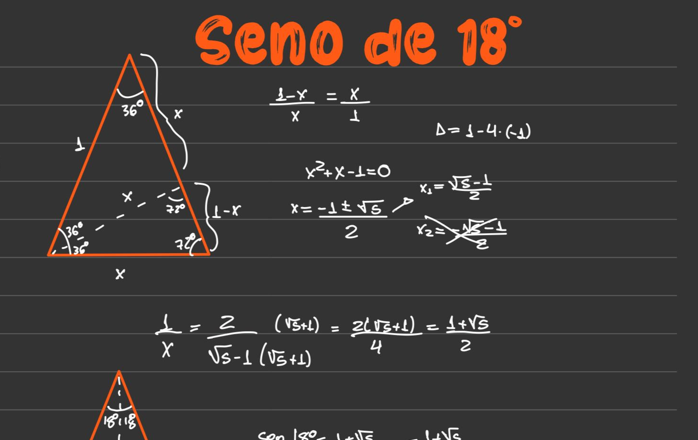 Seno de 18°
36°
x
1
x
72°
1-x
36°
36°
72°
x
(1-x)/x = x/1
Δ = 1-4·(-1)
x²+x-1=0
x = (-1 ± √5)/2
x₁ = (√5-1)/2
x₂ = (-√5-1)/2
1/x = 2/(√5-1) (√5+1)/(√5+1) = 2(√5+1)/4 = (1+√5)/2
18° 18°